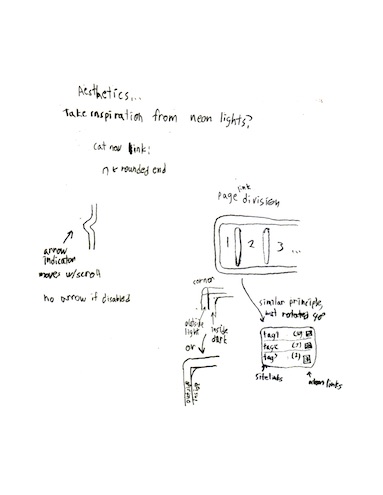 Aesthetics...
Take inspiration from neon lights?
cat nav link:
rounded end
link
page division
arrow
indicator
moves w/scroll
no arrow if disabled
1 2 3 ...
corner
outside
light
inside
dark
or
similar principle,
but rotated 90°
tag1
tag2
tag3
outside
inside